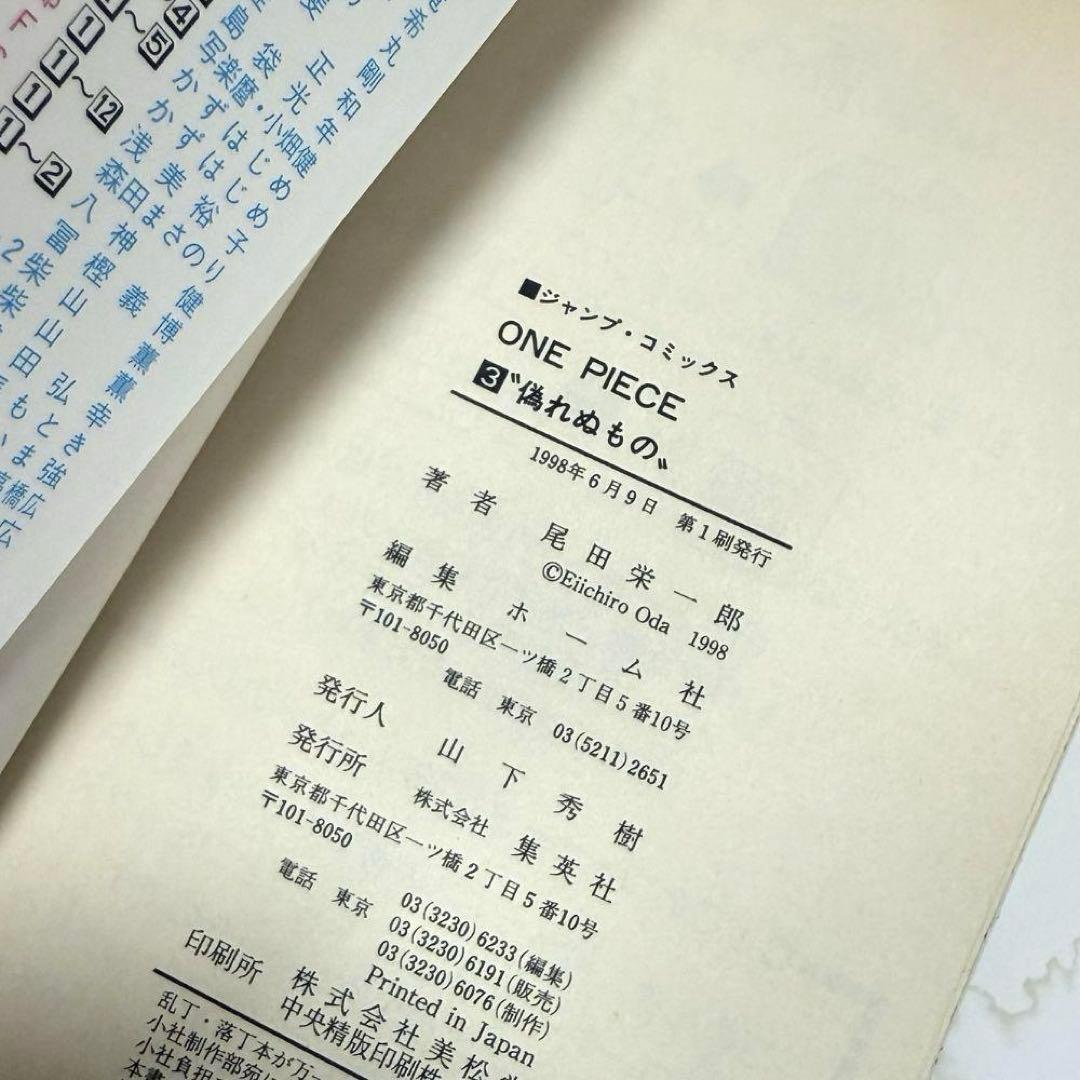 ■ジャンプ・コミックス
ONE PIECE
3〝偽れぬもの〟
1998年6月9日 第1刷発行
著者 尾田栄一郎
©Eiichiro Oda 1998
編集 ホーム社
東京都千代田区一ツ橋2丁目5番10号
〒101-8050
電話 東京 03(5211)2651
発行人 山下秀樹
発行所 株式会社 集英社
東京都千代田区一ツ橋2丁目5番10号
〒101-8050
03(3230)6233(編集)
電話 東京 03(3230)6191(販売)
03(3230)6076(制作)
Printed in Japan
印刷所 株式会社美松
中央精版印刷株
乱丁・落丁本が万一
小社制作部宛に
小社負担
本書
希丸剛和年
正光
写楽麿・小畑健
かずはじめ
かずはじめ
浅美裕子
森田まさのり
八神健
冨樫義博
柴山薫
柴山薫
1~5
1
1~12
1
1~2